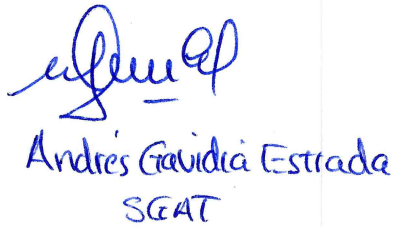 Andrés Gavidia Estrada
SGAT